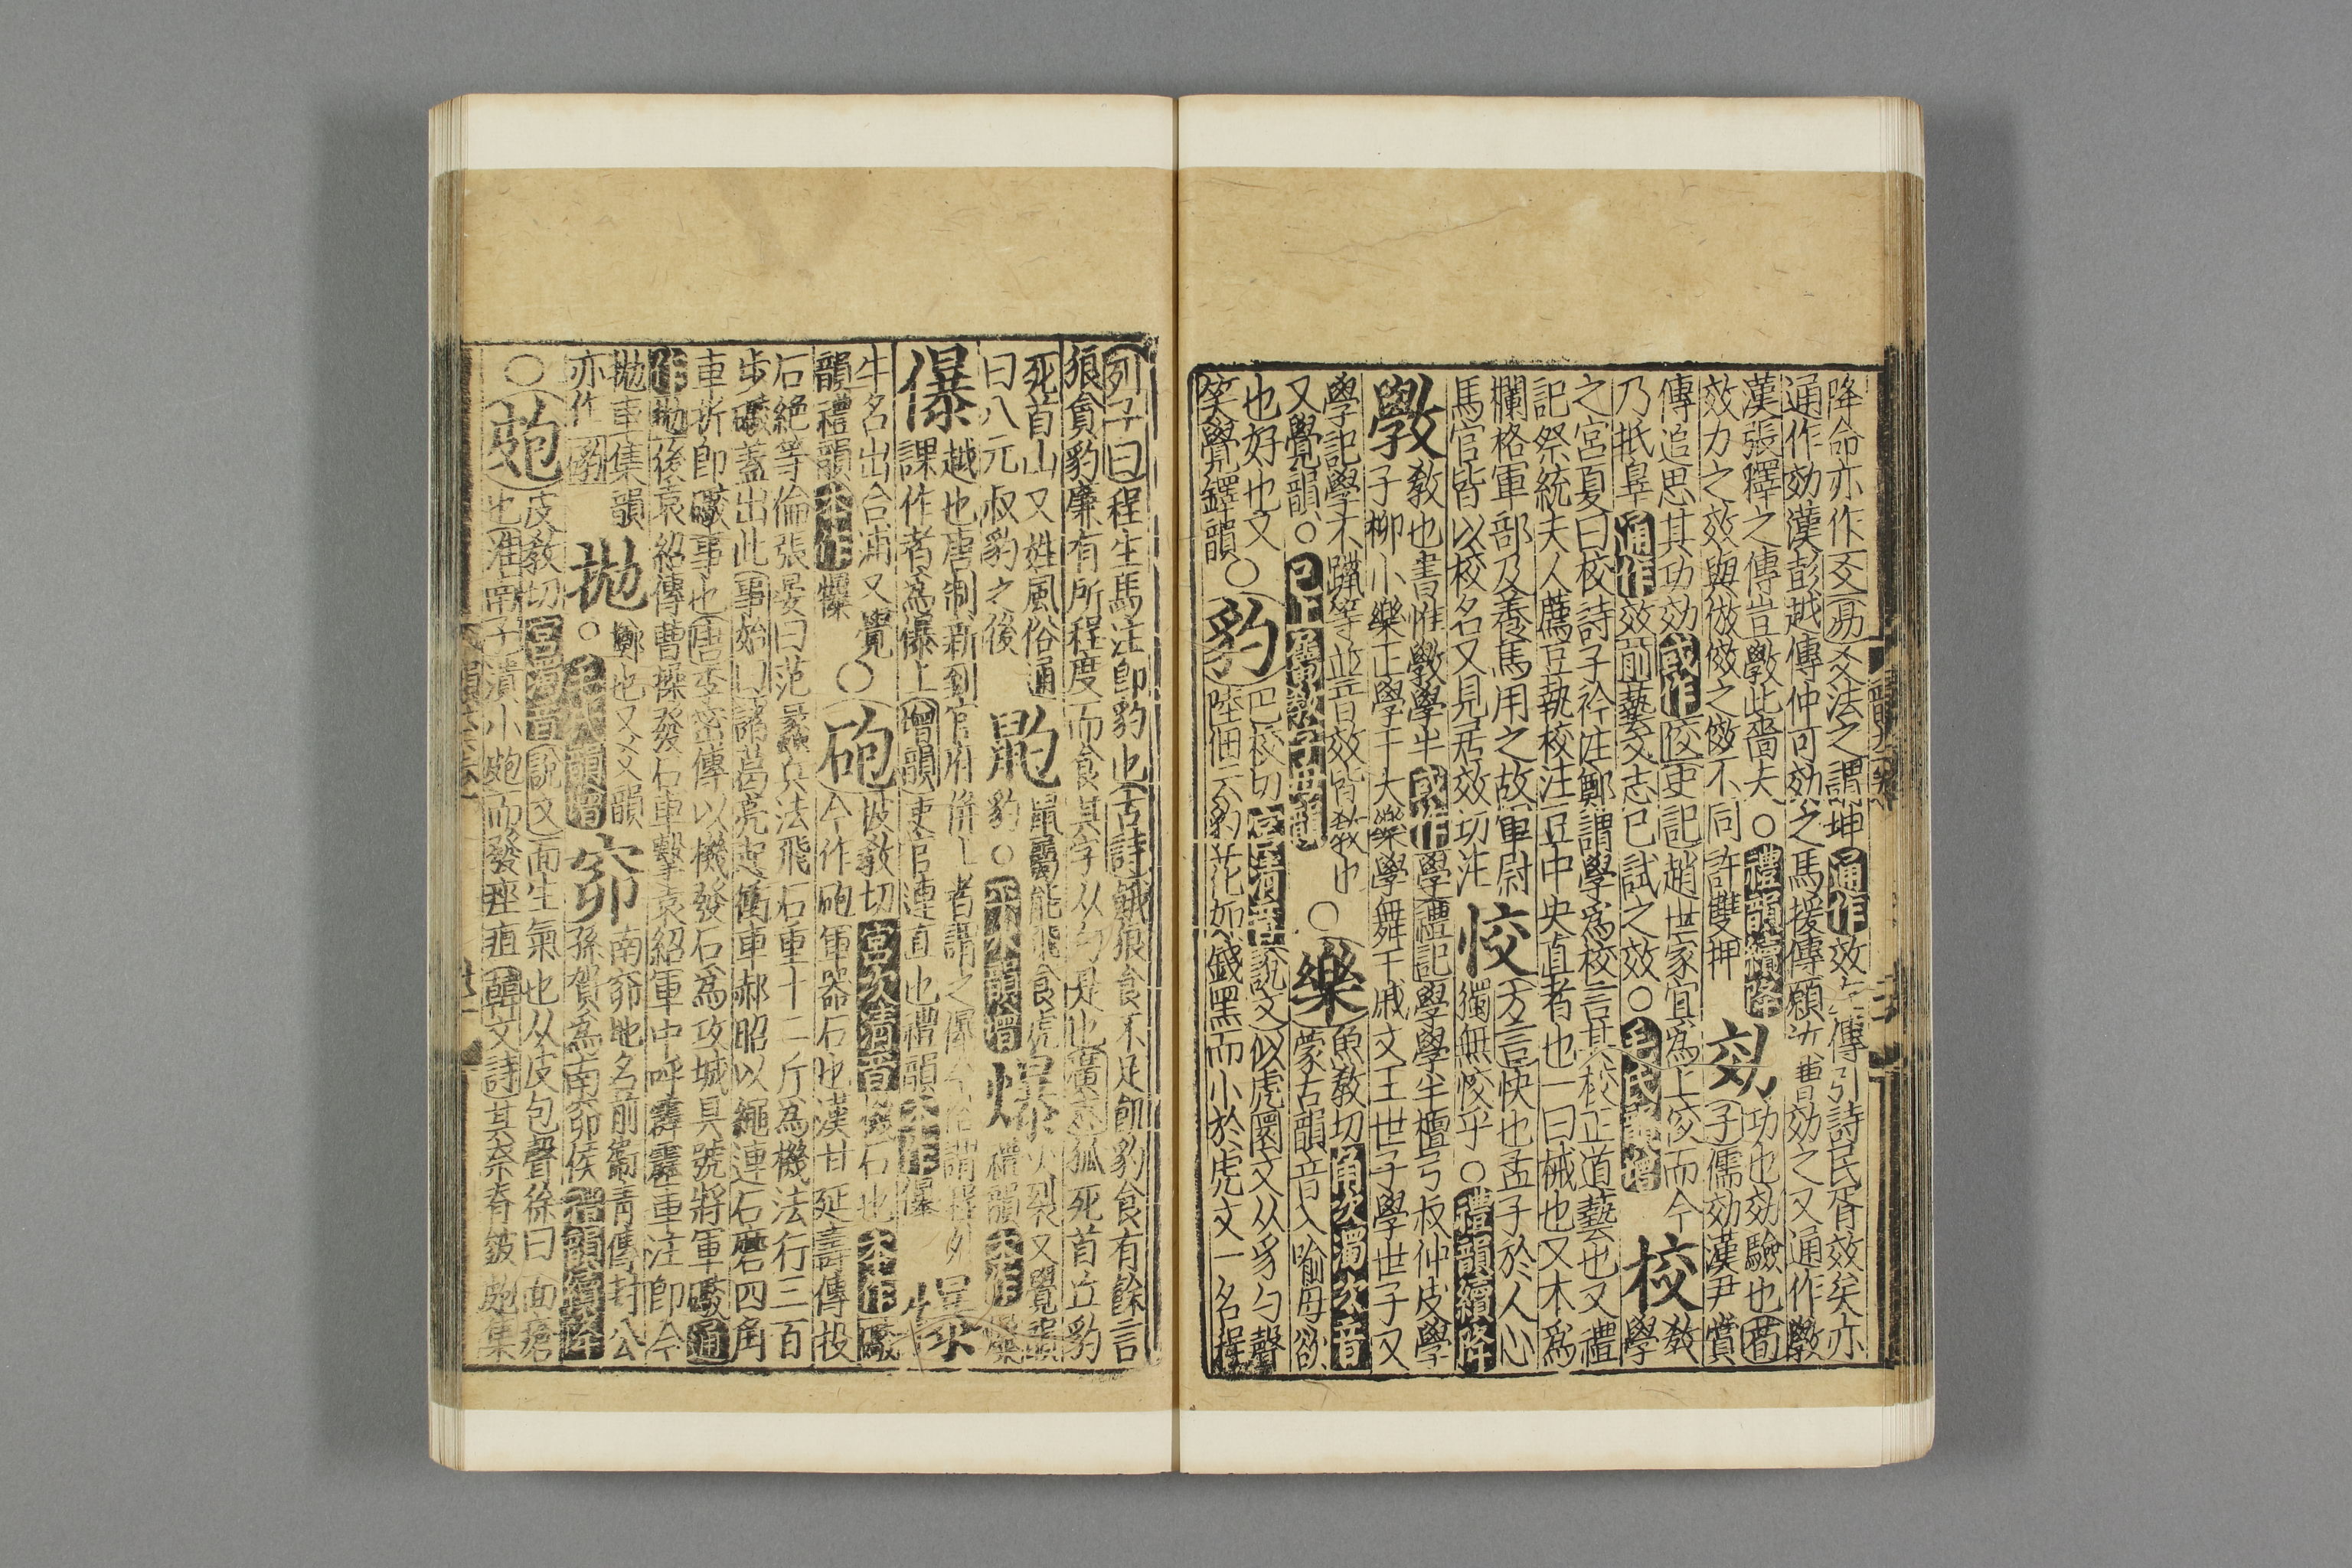 降命亦作爻易爻法之謂坤通作效左傳引詩民胥效矣亦
通作効漢彭越傳仲可効之馬援傳願汝曹効之又通作斆
漢張釋之傳豈斆此嗇夫○禮韻續降
效力之效與倣傚之傚不同許雙押
効功也効驗也荀子儒効漢尹賞
傳追思其功効或作俲史記趙世家宜爲上佼而今
乃抵辠通作效前藝文志已試之效○毛氏韻增
校教學
之宮夏曰校詩子衿注鄭謂學爲校言其校正道藝也又禮
記祭統夫人薦豆執校注豆中央直者也一曰械也又木爲
欄格軍部及養馬用之故軍尉
馬官皆以校名又見居效切注
恔方言快也孟子於人心獨無恔乎○禮韻續降
斆教也書惟斆學半或作學禮記學學半檀弓叔仲皮學
子柳小樂正學干大樂學舞干戚文王世子學世子又
學記學不躐等並音效皆教也
又覺韻○已上舊東斆字母韻
○樂魚教切角次濁次音蒙古韻音入喻母欲
也好也文
笑覺鐸韻
○豹巴校切宮清音說文似虎圜文从豸勺聲
陸佃云豹花如錢黑而小於虎文一名程
列子曰程生馬注即豹也古詩餓狼食不足飢豹食有餘言
狼貪豹廉有所程度而食其字从勺是也廣志狐死首丘豹
死首山又姓風俗通
曰八元叔豹之後
鼩鼠屬能飛食虎豹○平水韻增
爆火裂又覺韻禮韻不作爆
儤越也唐制新到官府倂上者謂之儤
課作者爲儤上增韻吏官連直也禮韻不作儤
犦牛名出合浦又覺
韻禮韻不作犦
○砲披教切宮次清音機石也本作礮
今作砲軍器石也漢甘延壽傳投
石絶等倫張晏曰范蠡兵法飛石重十二斤爲機法行三百
步礮蓋出此事始以諸葛亮起衝車郝昭以繩連石磨四角
車折即礮事也唐李密傳以機發石爲攻城具號將軍礮通
作抛後袁紹傳曹操發石車擊袁紹軍中呼霹靂車注即今
抛車集韻
亦作
抛擲也又爻韻○毛氏韻增
奅南奅地名前衛靑傳封公孫賀爲南奅侯禮韻續降
○皰皮教切宮濁音說文面生氣也从皮包聲徐曰面瘡
也淮南子潰小皰而發痤疽韓文詩其奈脊皴皰集